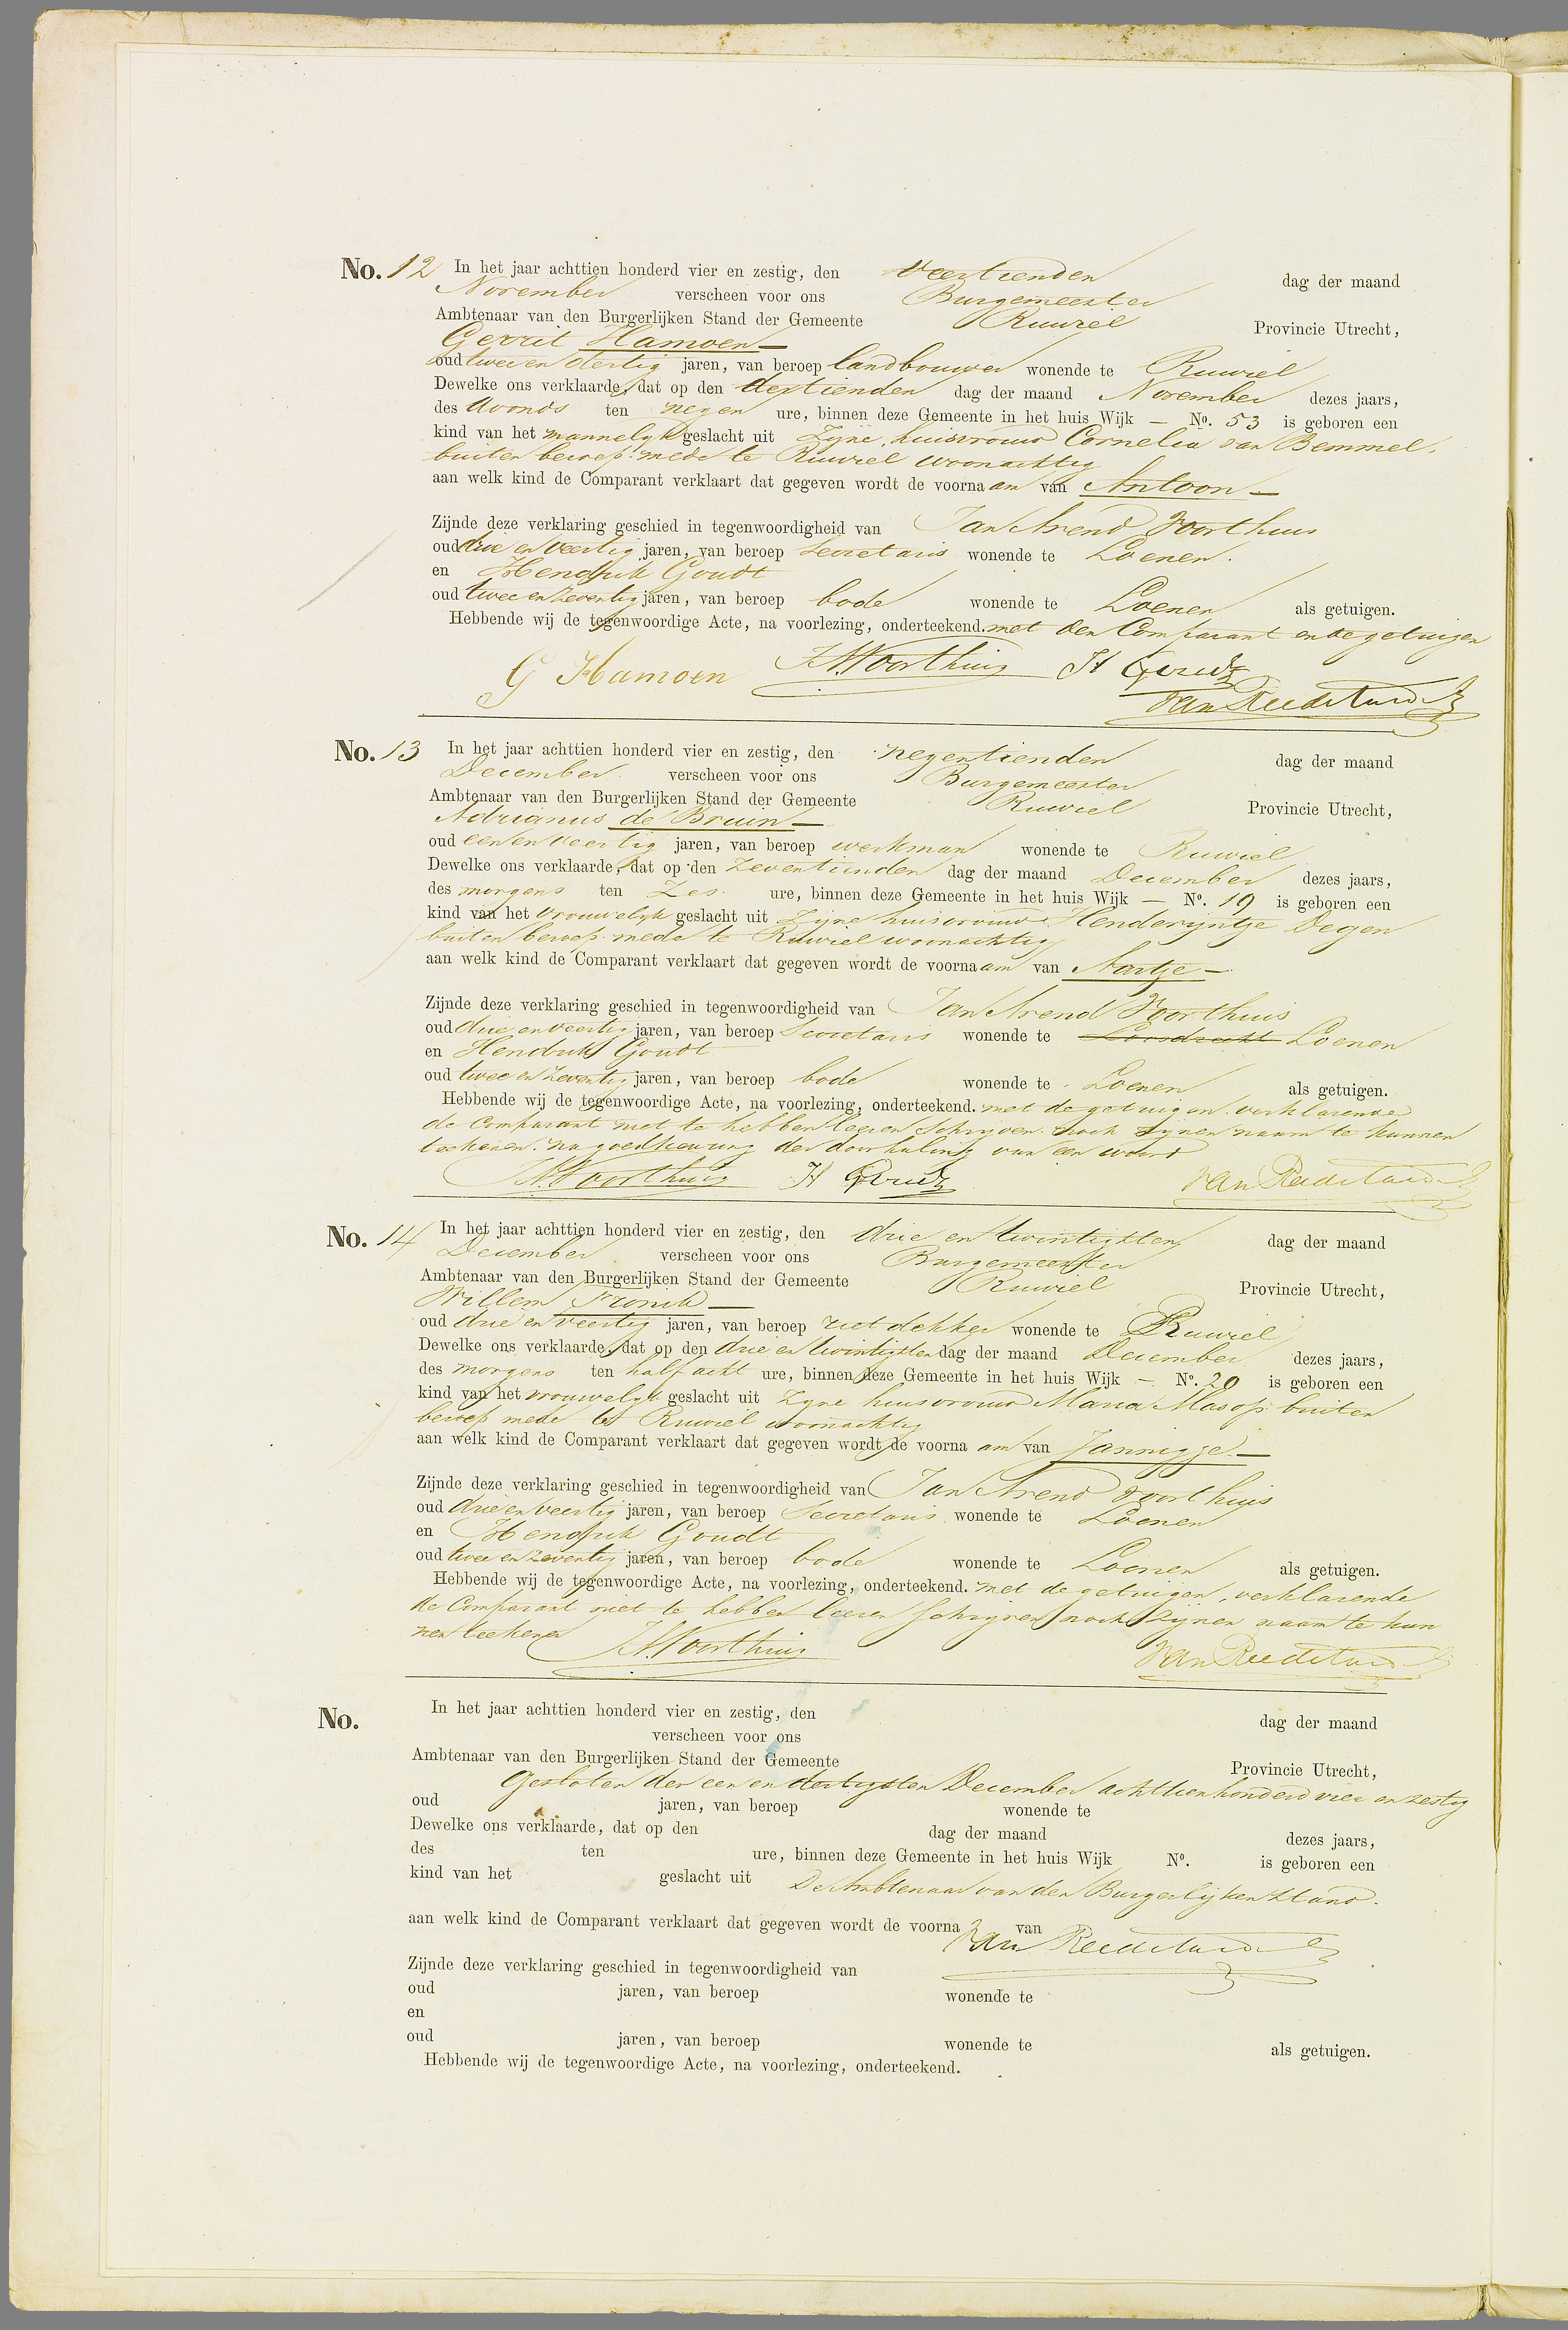 No. 12 In het jaar achttien honderd vier en zestig, den veertienden dag der maand
November verscheen voor ons Burgemeester
Ambtenaar van den Burgerlijken Stand der Gemeente Ruwiel Provincie Utrecht,
Gerrit Hamoen —
oud twee en dertig jaren, van beroep landbouwer wonende te Ruwiel
Dewelke ons verklaarde, dat op den dertienden dag der maand November dezes jaars,
des avonds ten negen ure, binnen deze Gemeente in het huis Wijk — No. 53 is geboren een
kind van het mannelyk geslacht uit Zyne huisvrouw Cornelia van Bemmel,
buiten beroep mede te Ruwiel woonachtig
aan welk kind de Comparant verklaart dat gegeven wordt de voornaam van Antoon —
Zijnde deze verklaring geschied in tegenwoordigheid van Jan Arend Voorthuis
oud drie en veertig jaren, van beroep Secretaris wonende te Loenen.
en Hendrik Goudt
oud twee en zeventig jaren, van beroep bode wonende te Loenen als getuigen.
Hebbende wij de tegenwoordige Acte, na voorlezing, onderteekend. met den Comparant en de getuigen
G Hamoen JAVoorthuis H Goudt
No. 13 In het jaar achttien honderd vier en zestig, den negentienden dag der maand
December verscheen voor ons Burgemeester
Ambtenaar van den Burgerlijken Stand der Gemeente Ruwiel Provincie Utrecht,
Adrianus de Bruin —
oud een en veertig jaren, van beroep werkman wonende te Ruwiel
Dewelke ons verklaarde, dat op den zeventienden dag der maand December dezes jaars,
des morgens ten Zes ure, binnen deze Gemeente in het huis Wijk — No. 19 is geboren een
kind van het vrouwelyk geslacht uit Zyne huisvrouw Henderyntje Degen
buiten beroep mede te Ruwiel woonachtig
aan welk kind de Comparant verklaart dat gegeven wordt de voornaam van Aartje —
Zijnde deze verklaring geschied in tegenwoordigheid van Jan Arend Voorthuis
oud drie en veertig jaren, van beroep Secretaris wonende te Loosdrecht Loenen
en Hendrik Goudt
oud twee en zeventig jaren, van beroep bode wonende te Loenen als getuigen.
Hebbende wij de tegenwoordige Acte, na voorlezing, onderteekend. met de getuigen. verklarende
de Comparant niet te hebben leeren schryven noch zynen naam te kunnen
teekenen. na goedkeuring der doorhaling van een woord
JAVoorthuis H Goudt
No. 14 In het jaar achttien honderd vier en zestig, den drie en twintigsten dag der maand
December verscheen voor ons Burgemeester
Ambtenaar van den Burgerlijken Stand der Gemeente Ruwiel Provincie Utrecht,
Willem Vronik —
oud drie en veertig jaren, van beroep rietdekker wonende te Ruwiel
Dewelke ons verklaarde, dat op den drie en twintigsten dag der maand December dezes jaars,
des morgens ten half acht ure, binnen deze Gemeente in het huis Wijk — No. 20 is geboren een
kind van het vrouwelyk geslacht uit Zyne huisvrouw Maria Masop buiten
beroep mede te Ruwiel woonachtig
aan welk kind de Comparant verklaart dat gegeven wordt de voornaam van Jannigje —
Zijnde deze verklaring geschied in tegenwoordigheid van Jan Arend Voorthuis
oud drie en veertig jaren, van beroep Secretaris wonende te Loenen
en Hendrik Goudt
oud twee en zeventig jaren, van beroep bode wonende te Loenen als getuigen.
Hebbende wij de tegenwoordige Acte, na voorlezing, onderteekend. met de getuigen, verklarende
de Comparant niet te hebben leeren schryven noch zynen naam te kun
nen teekenen JAVoorthuis
No. In het jaar achttien honderd vier en zestig, den dag der maand
verscheen voor ons
Ambtenaar van den Burgerlijken Stand der Gemeente Provincie Utrecht,
Gesloten den een en dertigsten December achttienhonderd vier en zestig
oud jaren, van beroep wonende te
Dewelke ons verklaarde, dat op den dag der maand dezes jaars,
des ten ure, binnen deze Gemeente in het huis Wijk No. is geboren een
kind van het geslacht uit De Ambtenaar van den Burgerlijken Stand.
aan welk kind de Comparant verklaart dat gegeven wordt de voorna van
Zijnde deze verklaring geschied in tegenwoordigheid van
oud jaren, van beroep wonende te
en
oud jaren, van beroep wonende te als getuigen.
Hebbende wij de tegenwoordige Acte, na voorlezing, onderteekend.